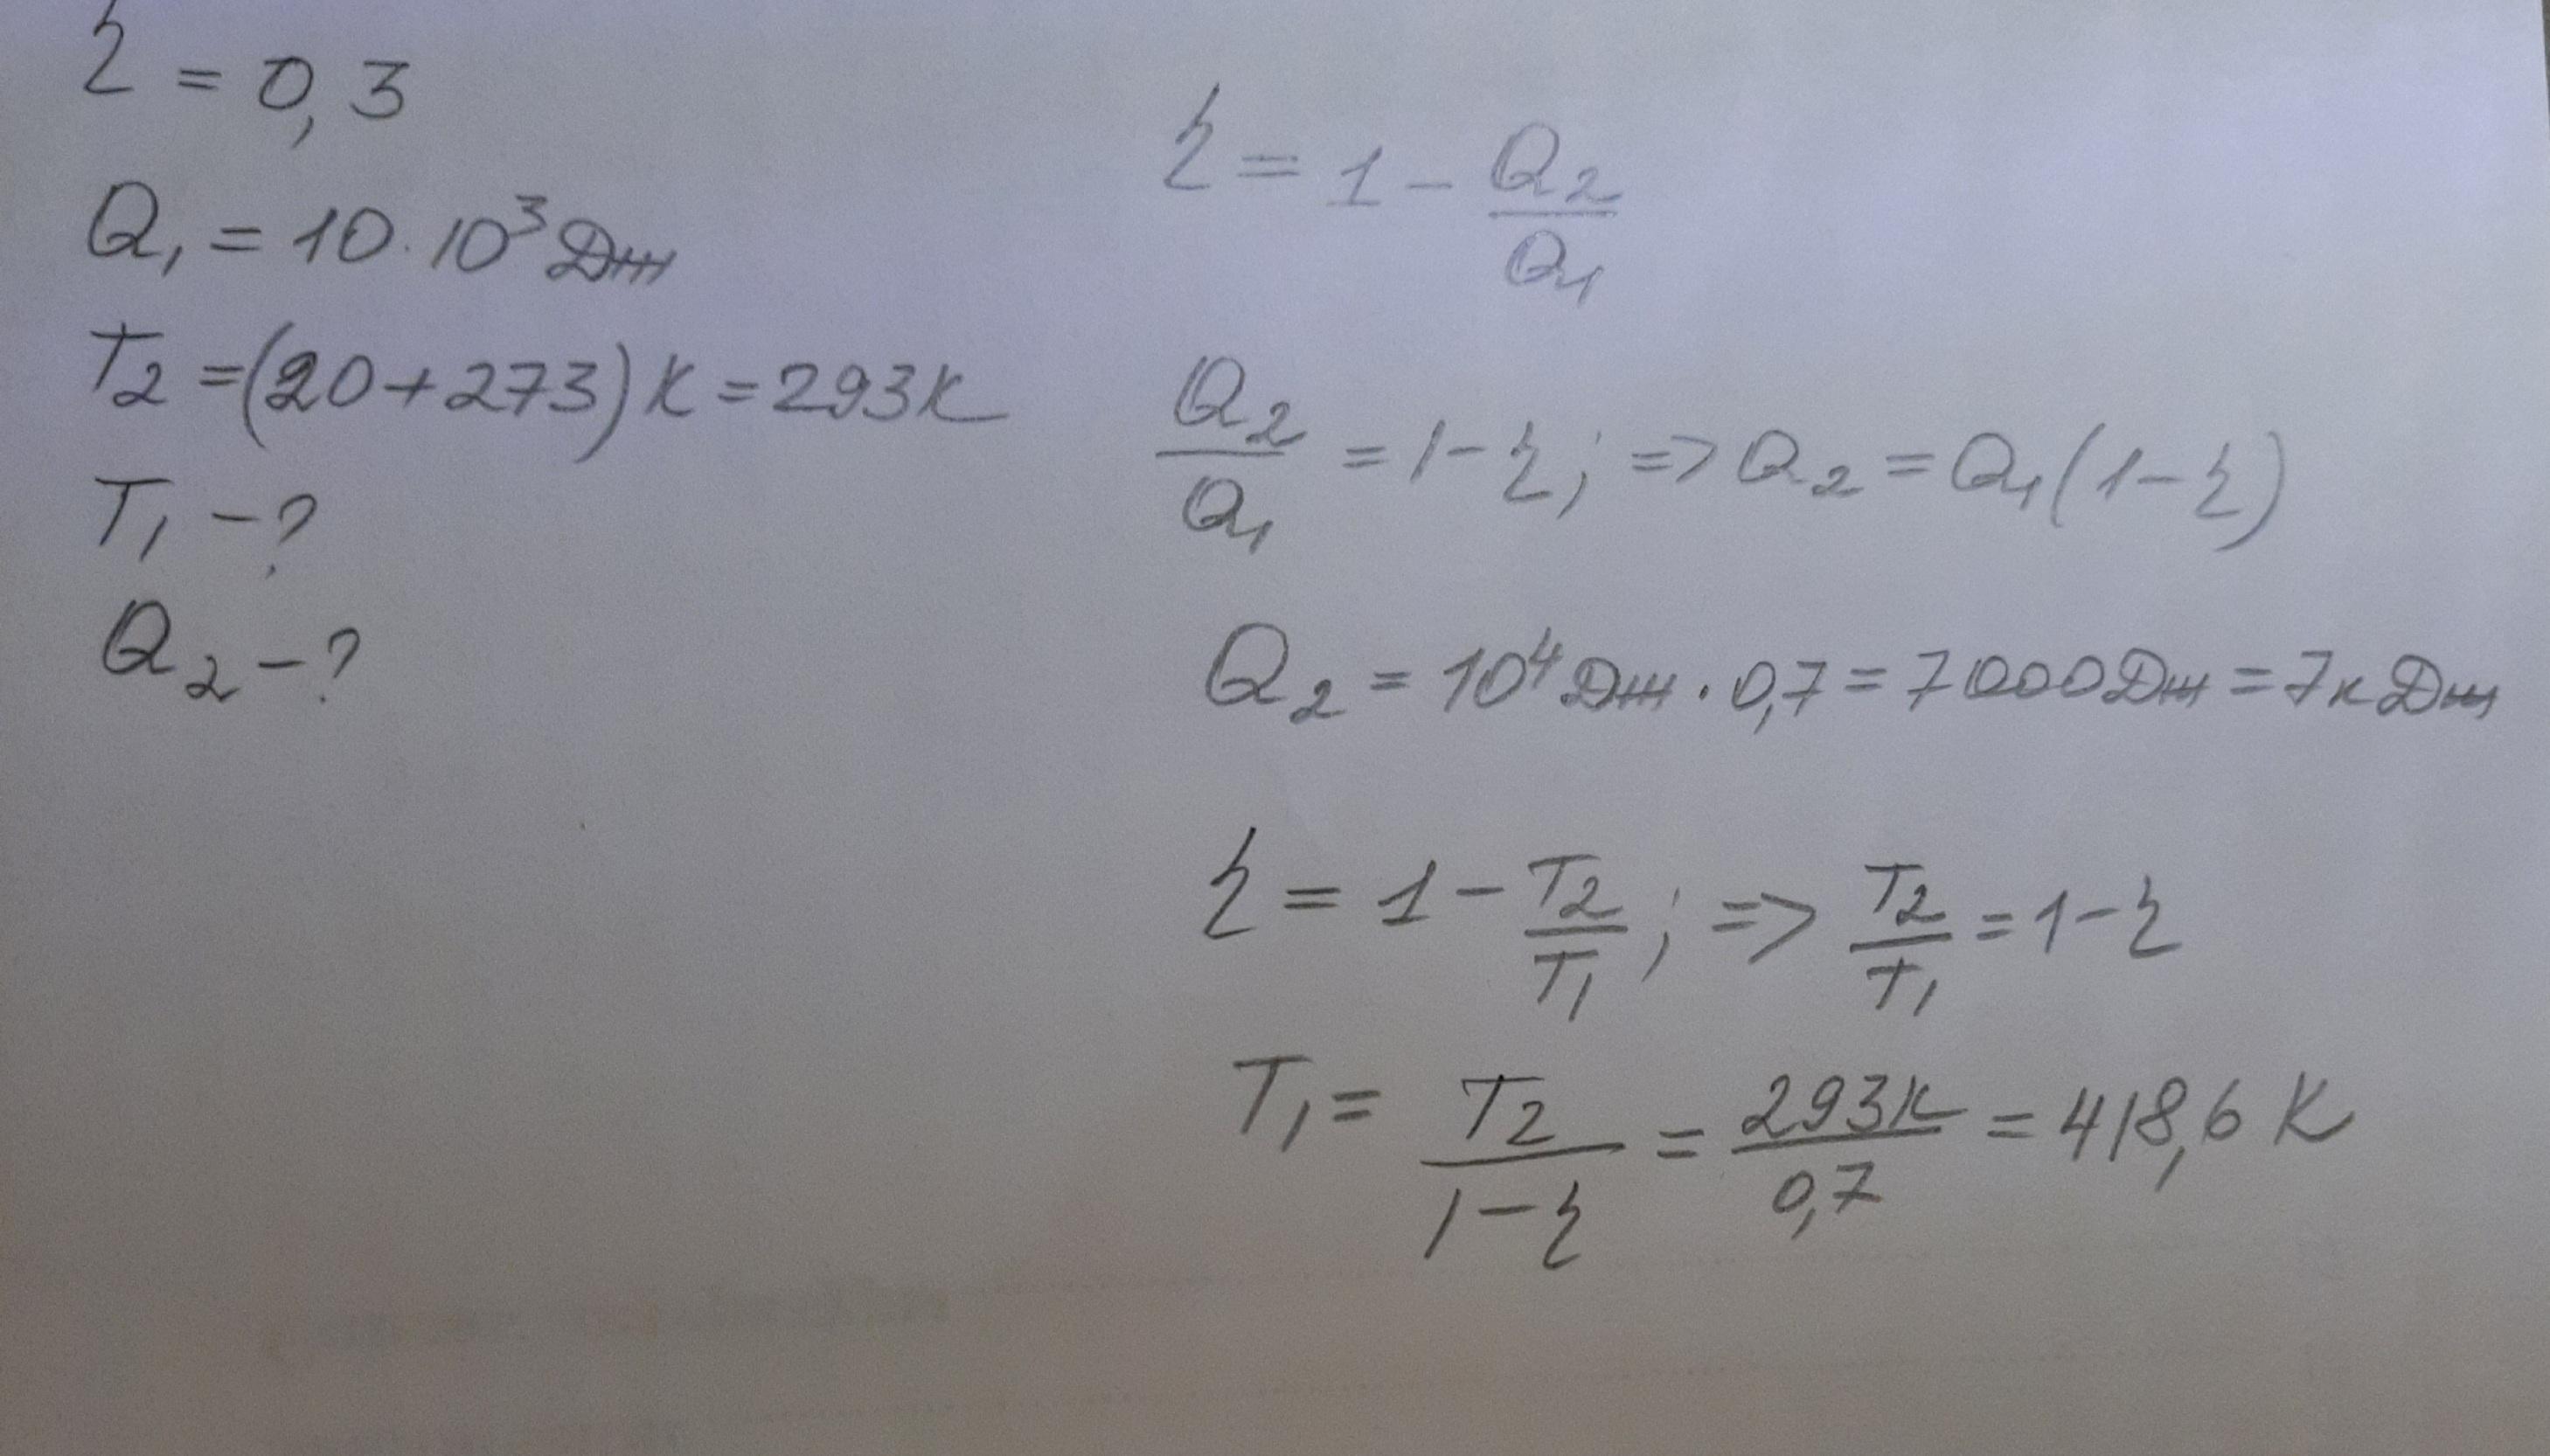 η = 0,3
Q₁ = 10·10³ Дж
T₂ = (20+273) K = 293 K
T₁ – ?
Q₂ – ?
η = 1 – Q₂/Q₁
Q₂/Q₁ = 1 – η; => Q₂ = Q₁(1 – η)
Q₂ = 10⁴ Дж · 0,7 = 7000 Дж = 7 кДж
η = 1 – T₂/T₁; => T₂/T₁ = 1 – η
T₁ = T₂/(1 – η) = 293 K/0,7 = 418,6 K